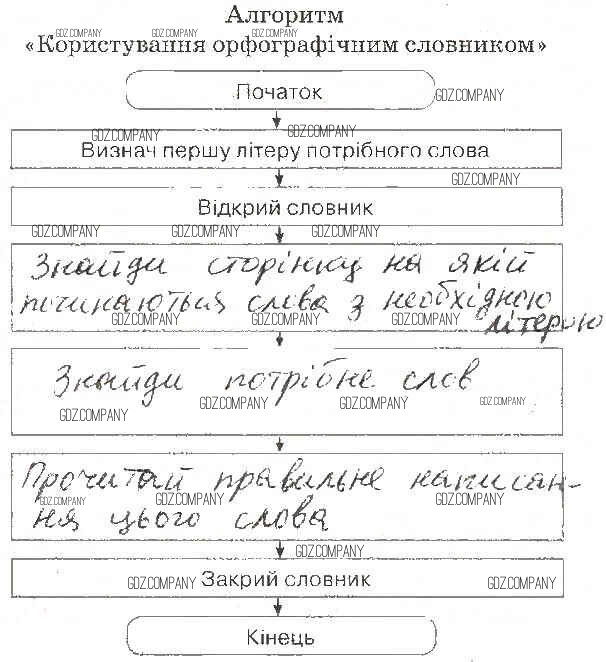 Алгоритм
«Користування орфографічним словником»
GDZ.COMPANY GDZ.COMPANY GDZ.COMPANY
Початок
GDZ.COMPANY
GDZ.COMPANY GDZ.COMPANY
Визнач першу літеру потрібного слова
GDZ.COMPANY
Відкрий словник
GDZ.COMPANY GDZ.COMPANY GDZ.COMPANY
Знайди сторінку на якій
починаються слова з необхідною
літерою
GDZ.COMPANY GDZ.COMPANY GDZ.COMPANY
Знайди потрібне слов
GDZ.COMPANY GDZ.COMPANY GDZ.COMPANY GDZ.COMPANY
Прочитай правильне написан-
GDZ.COMPANY GDZ.COMPANY GDZ.COMPANY
ня цього слова
GDZ.COMPANY
GDZ.COMPANY Закрий словник GDZ.COMPANY
Кінець